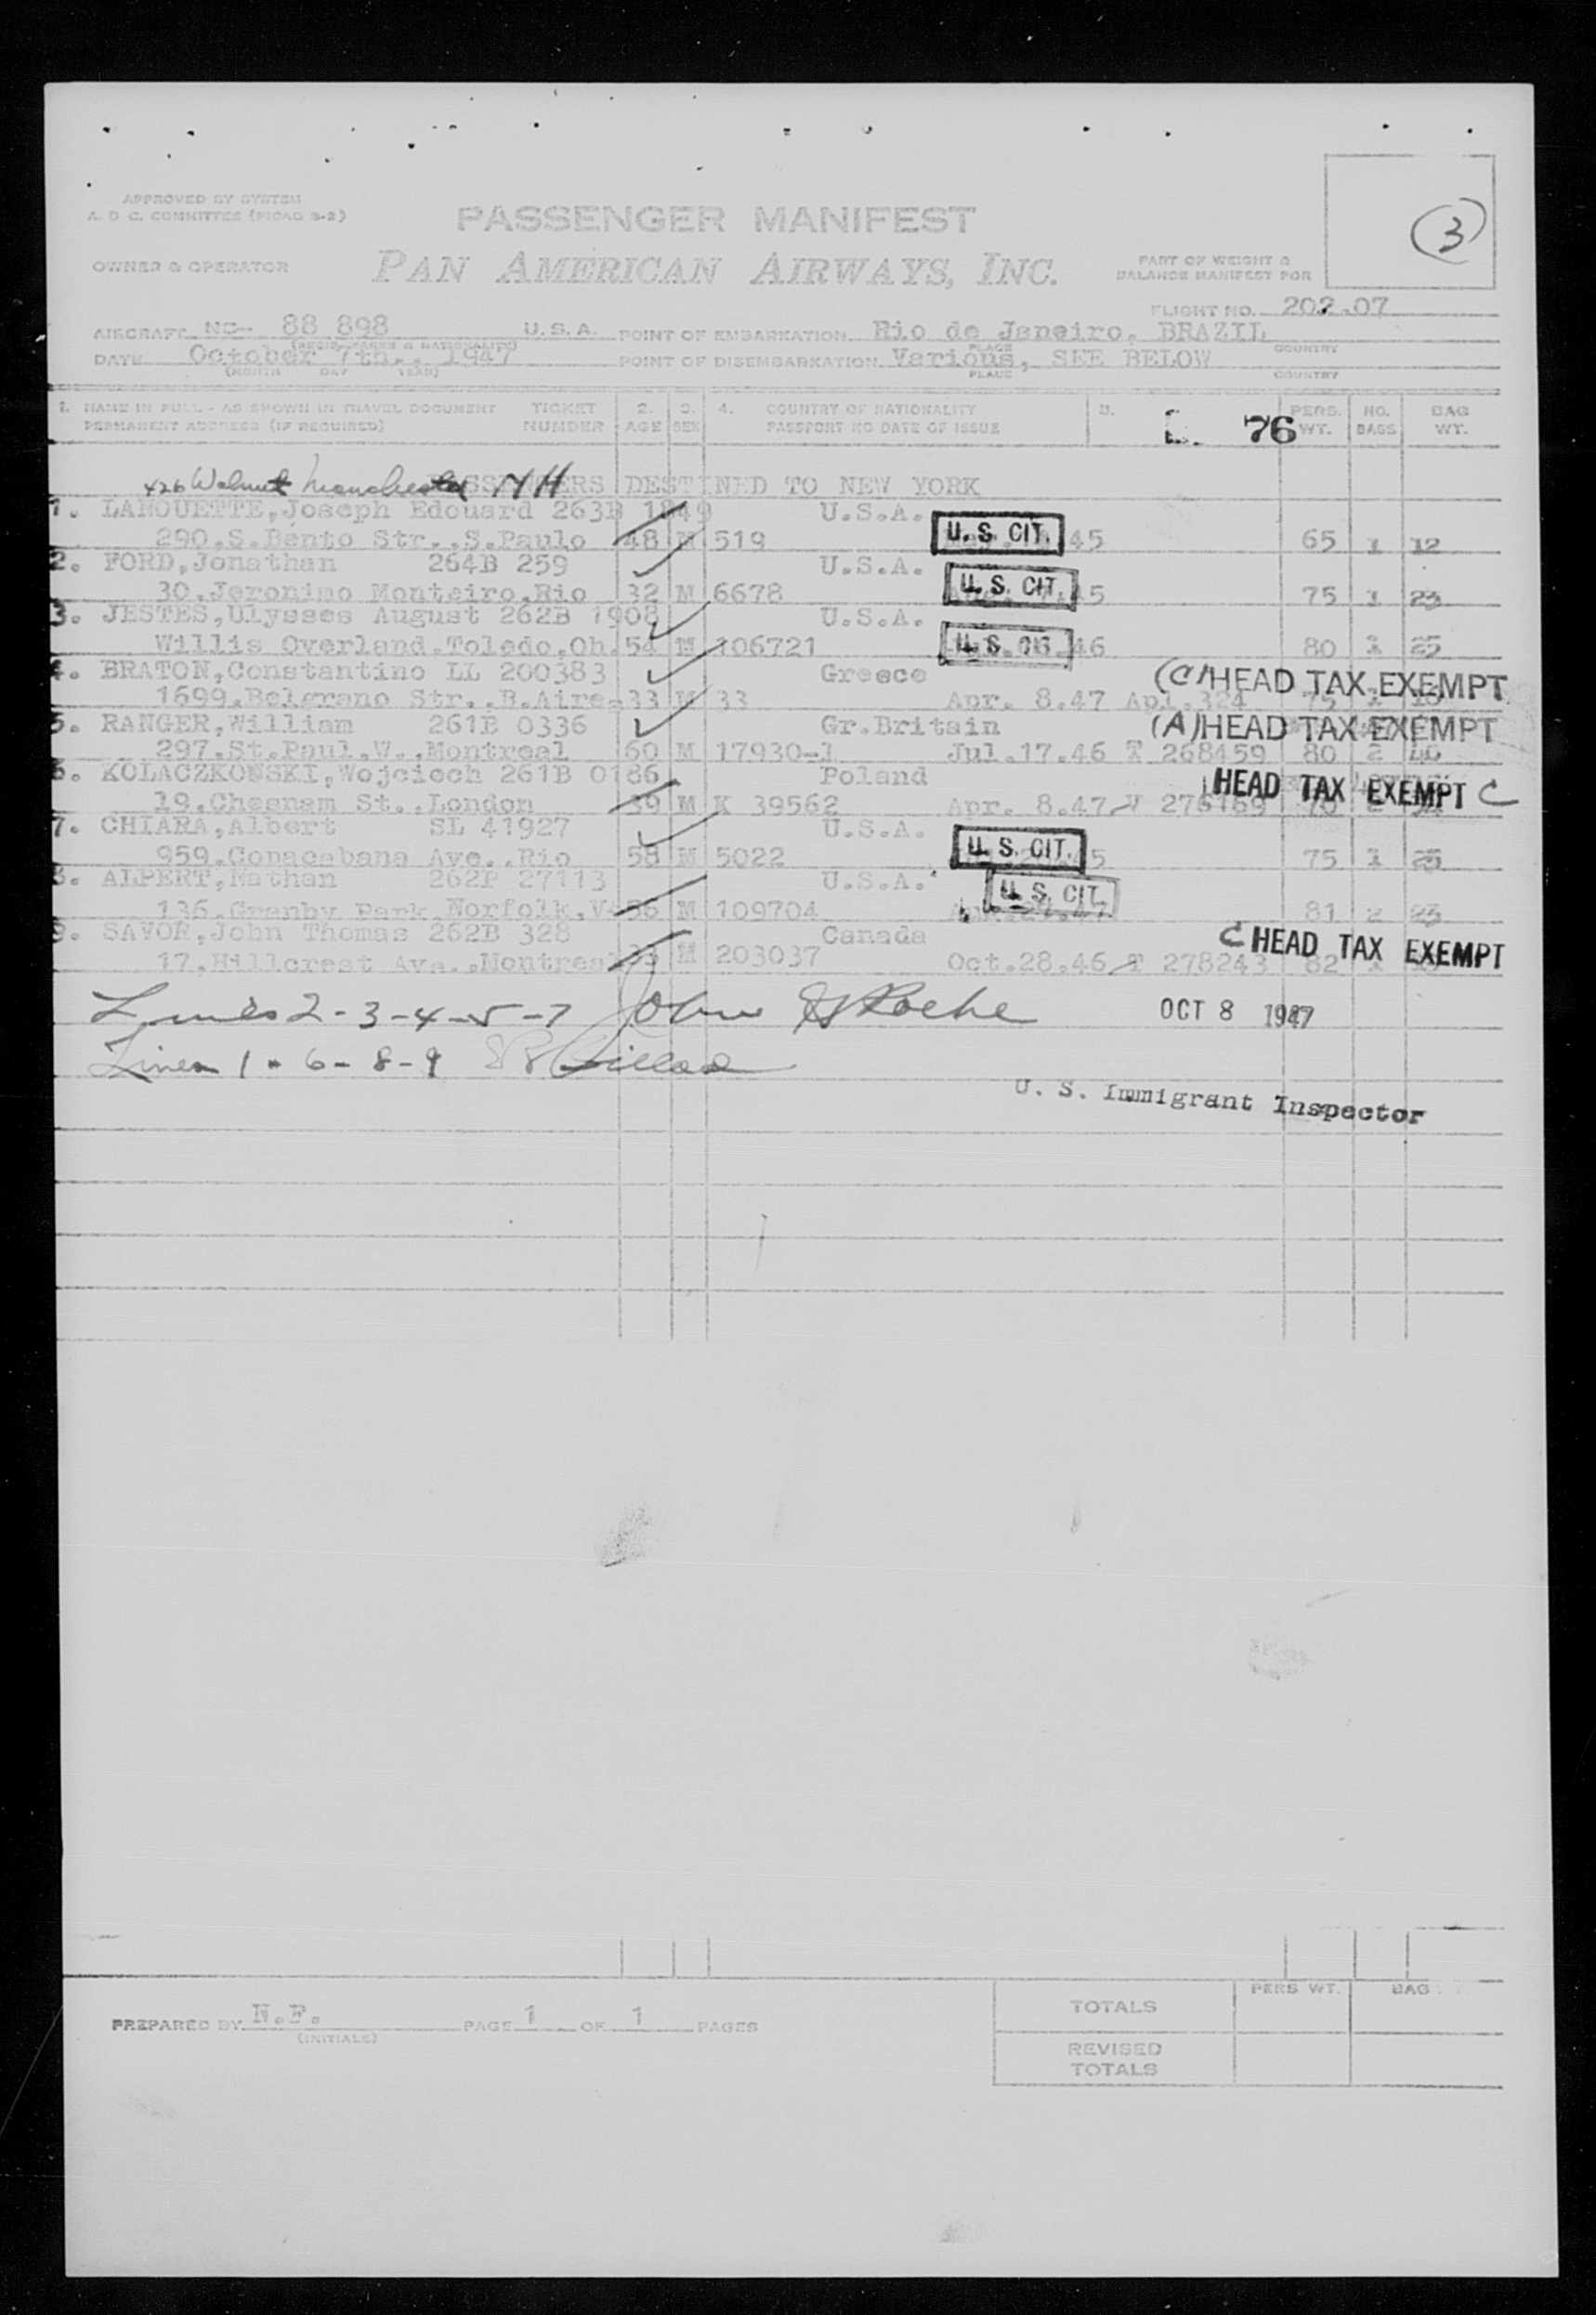 APPROVED BY SYSTEM
A. D C. COMMITTEE (PICAO 3-2)
PASSENGER MANIFEST
3
OWNER & OPERATOR
PAN AMERICAN AIRWAYS, INC.
PART OF WEIGHT &
BALANCE MANIFEST FOR
FLIGHT NO. 202-07
AIRCRAFT NC- 88 898 U.S.A. POINT OF EMBARKATION Rio de Janeiro, BRAZIL
PLACE COUNTRY
DATE October 7th., 1947 POINT OF DISEMBARKATION Various, SEE BELOW
(MONTH DAY YEAR) PLACE COUNTRY
1. NAME IN FULL - AS SHOWN IN TRAVEL DOCUMENT TICKET 2. 3. 4. COUNTRY OF NATIONALITY 5. PERS. NO. BAG
PERMANENT ADDRESS (IF REQUIRED) NUMBER AGE SEX PASSPORT NO DATE OF ISSUE 76 WT. BAGS WT.
426 Walnut Manchester NH DESTINED TO NEW YORK
1. LAMOUETTE, Joseph Edouard 263B 1849 U.S.A.
290.S.Bento Str..S.Paulo 48 M 519 U.S. CIT. 45 65 1 12
2. FORD, Jonathan 264B 259 U.S.A.
30.Jeronimo Monteiro.Rio 32 M 6678 U.S. CIT. 45 75 1 23
3. JESTES, Ulysses August 262B 1908 U.S.A.
Willis Overland.Toledo.Oh. 54 M 106721 U.S. CIT. 46 80 1 25
4. BRATON, Constantino LL 200383 Greece (C) HEAD TAX EXEMPT
1699.Belgrano Str..B.Aire. 33 M 33 Apr. 8.47 Apl.324 75 1
5. RANGER, William 261B 0336 Gr.Britain (A) HEAD TAX EXEMPT
297.St.Paul.W..Montreal 60 M 17930-J Jul.17.46 T 268459 80 2 40
6. KOLACZKOWSKI, Wojciech 261B 0186 Poland HEAD TAX EXEMPT C
19.Chesham St..London 39 M K 39562 Apr. 8.47 V 276169
7. CHIARA, Albert SL 41927 U.S.A.
959.Copacabana Ave..Rio 58 M 5022 U.S. CIT. 5 75 1 25
8. ALPERT, Nathan 262P 27113 U.S.A.
136.Granby Park.Norfolk.Va 56 M 109704 U.S. CIT. 81 2 23
9. SAVOR, John Thomas 262B 328 Canada C HEAD TAX EXEMPT
17.Hillcrest Ave..Montreal 39 M 203037 Oct.28.46 T 278243 82
Lines 2-3-4-5-7 John Roche OCT 8 1947
Lines 1-6-8-9
U. S. Immigrant Inspector
PREPARED BY N.F. PAGE 1 OF 1 PAGES
(INITIALS)
PERS WT. BAG
TOTALS
REVISED
TOTALS